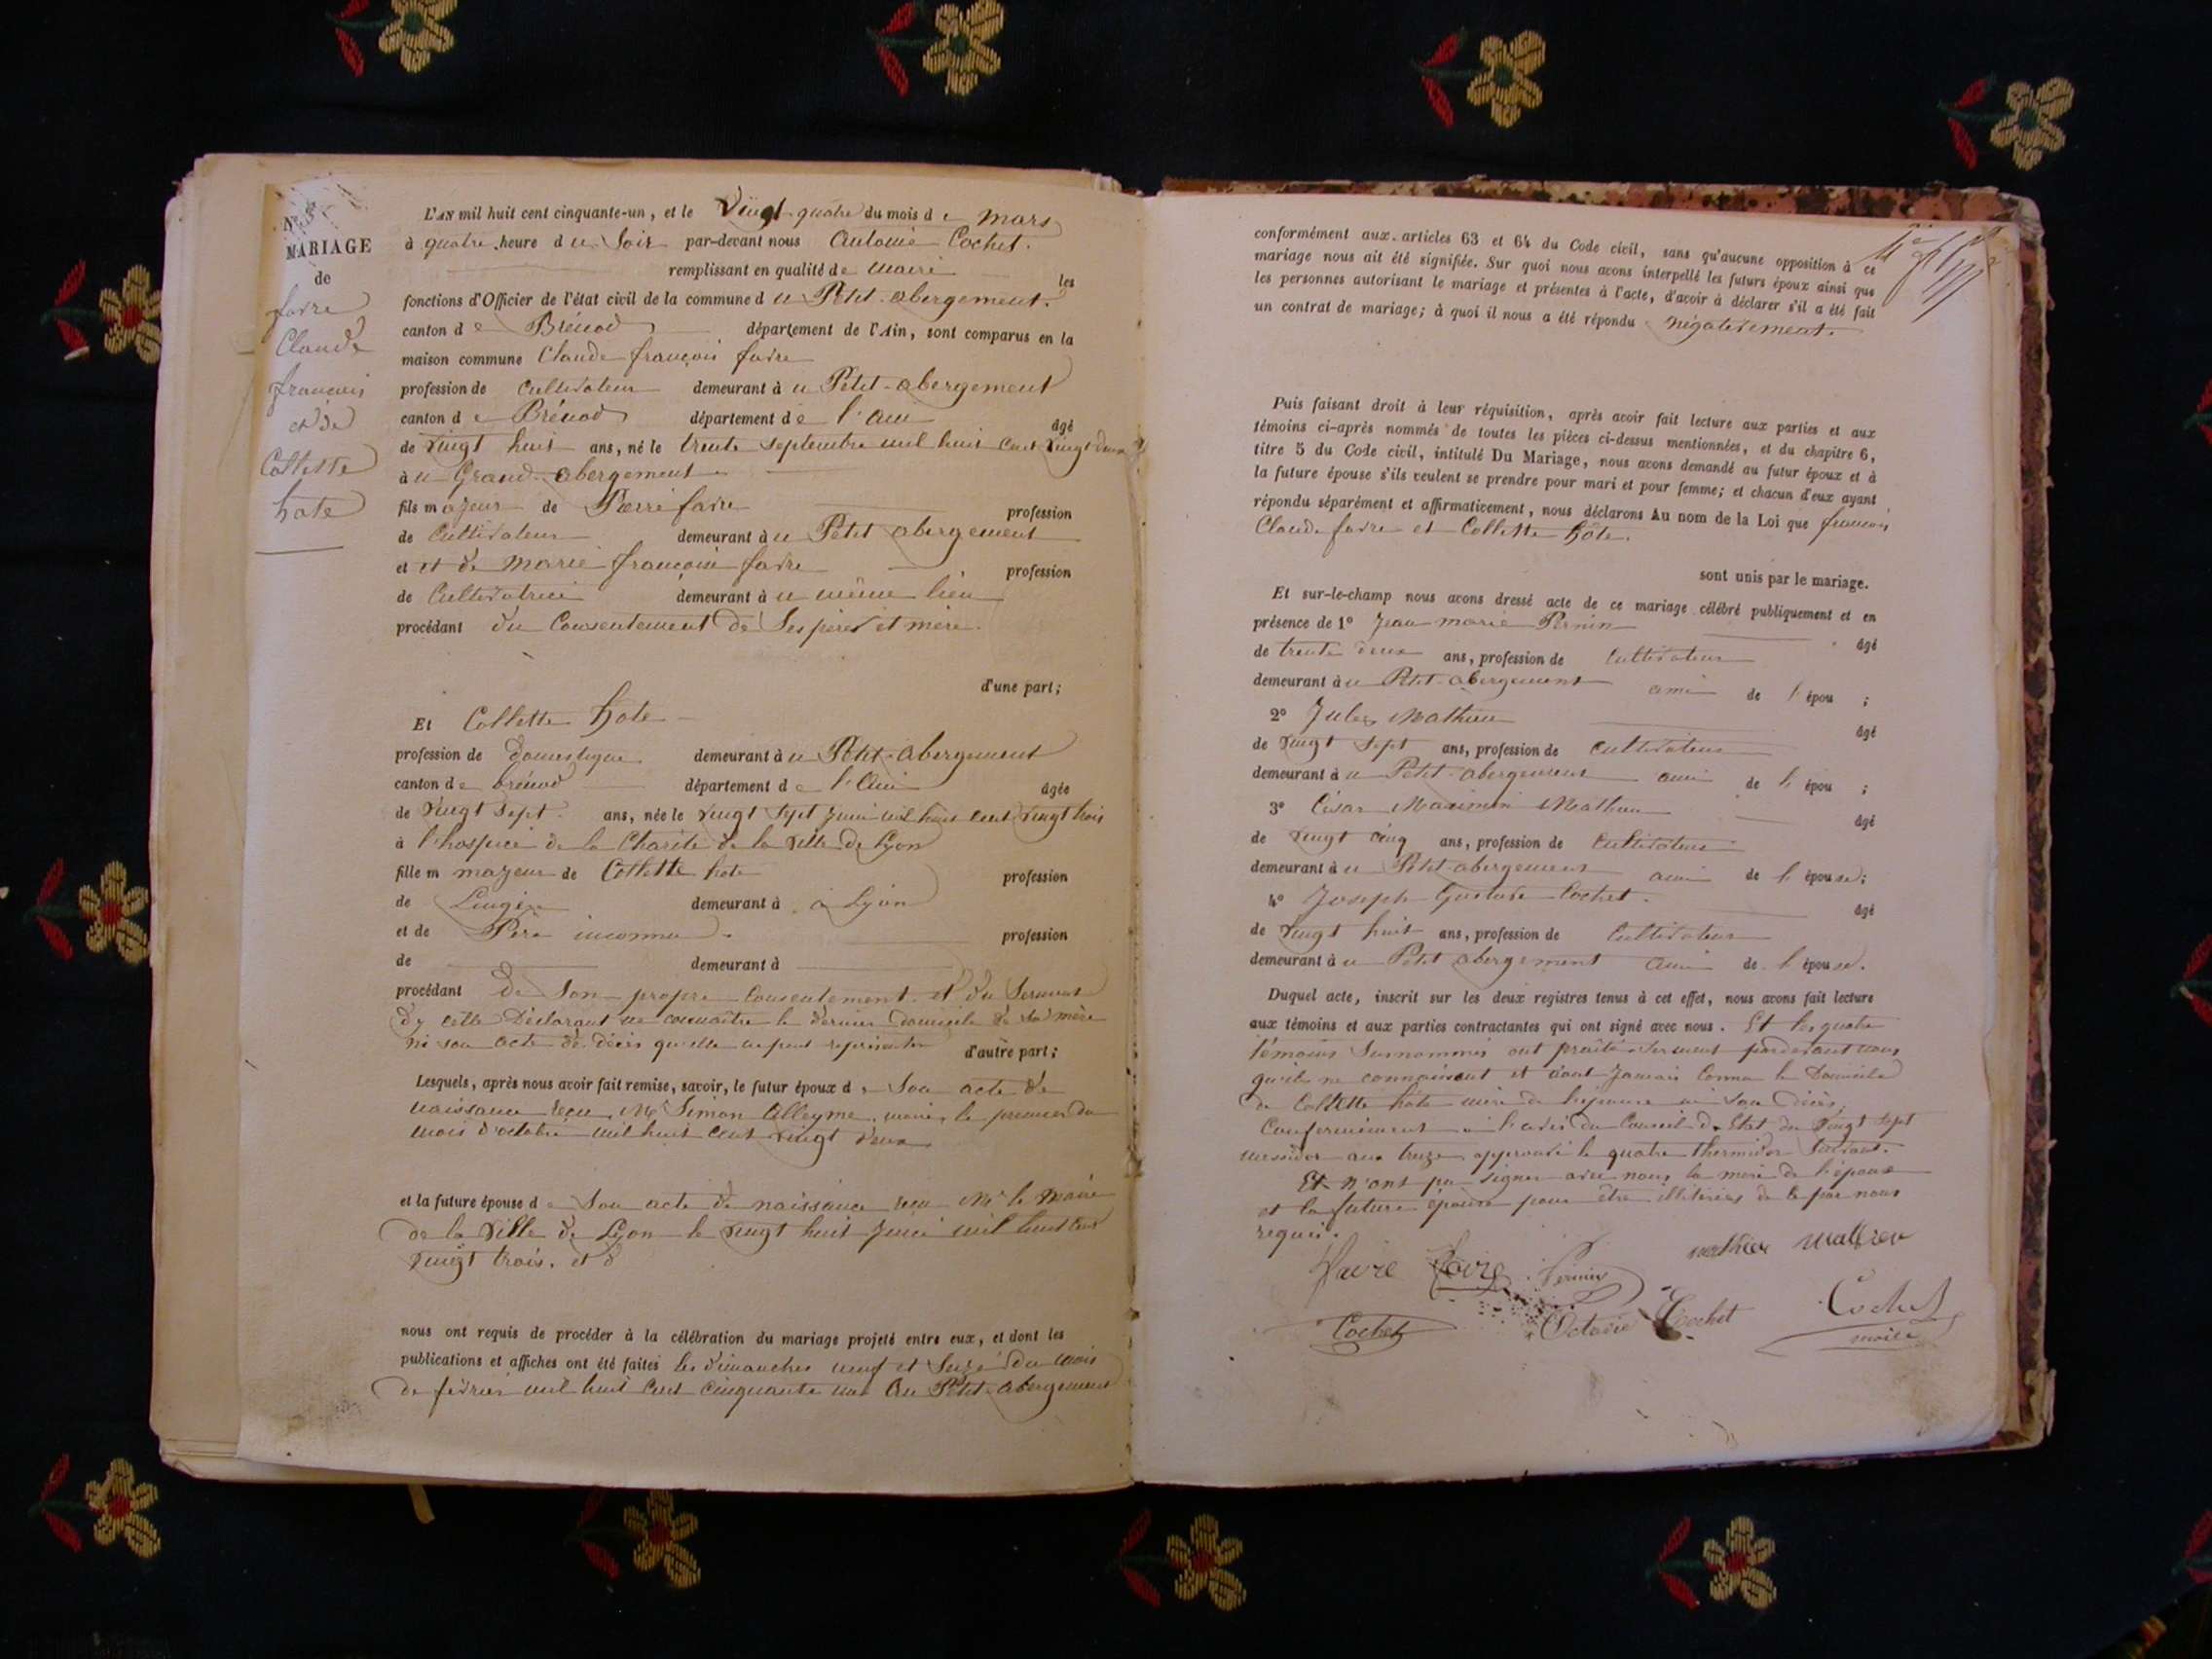 MARIAGE
de
favre
Claude
francois
et de
Collette
hote
L'AN mil huit cent cinquante-un, et le Vingt quatre du mois de mars
à quatre heure du Soir par-devant nous Antoine Cochet.
remplissant en qualité de maire les
fonctions d'Officier de l'état civil de la commune du Petit-abergement.
canton de Brénod département de l'Ain, sont comparus en la
maison commune Claude françois favre
profession de Cultivateur demeurant à u Petit-abergement
canton de Brénod département de l'ain âgé
de Vingt huit ans, né le trente Septembre mil huit cent vingt deux
à u Grand-abergement
fils majeur de Pierre favre profession
de Cultivateur demeurant à u Petit abergement
et et de Marie françoise favre profession
de Cultivatrice demeurant à u même lieu
procédant du Consentement de Ses père et mère.
d'une part;
Et Collette hote
profession de domestique demeurant à u Petit-abergement
canton de brénod département de l'Ain âgée
de Vingt Sept ans, née le vingt Sept Juin mil huit cent vingt trois
à l'hospice de la Charité de la ville de Lyon
fille m majeur de Collette hote profession
de Lingère demeurant à à Lyon
et de Père inconnu. profession
de demeurant à
procédant de Son propre Consentement et du Serment
de cette Déclarant ne connaître le dernier domicile de sa mère
ni son acte de décès qu'elle ne peut représenter d'autre part;
Lesquels, après nous avoir fait remise, savoir, le futur époux de Son acte de
naissance reçu Mr Simon Alleyme, maire, le premier du
mois d'octobre mil huit cent vingt deux
et la future épouse de Son acte de naissance reçu Mr le Maire
de la Ville de Lyon le vingt huit Juin mil huit cent
vingt trois. et d
nous ont requis de procéder à la célébration du mariage projeté entre eux, et dont les
publications et affiches ont été faites les dimanches neuf et Seize du mois
de février mil huit cent cinquante un Au Petit-abergement
conformément aux articles 63 et 64 du Code civil, sans qu'aucune opposition à ce
mariage nous ait été signifiée. Sur quoi nous avons interpellé les futurs époux ainsi que
les personnes autorisant le mariage et présentes à l'acte, d'avoir à déclarer s'il a été fait
un contrat de mariage; à quoi il nous a été répondu négativement.
Puis faisant droit à leur réquisition, après avoir fait lecture aux parties et aux
témoins ci-après nommés de toutes les pièces ci-dessus mentionnées, et du chapitre 6,
titre 5 du Code civil, intitulé Du Mariage, nous avons demandé au futur époux et à
la future épouse s'ils veulent se prendre pour mari et pour femme; et chacun d'eux ayant
répondu séparément et affirmativement, nous déclarons Au nom de la Loi que françois
Claude favre et Collette hôte.
sont unis par le mariage.
Et sur-le-champ nous avons dressé acte de ce mariage célébré publiquement et en
présence de 1° Jean marie Pernin âgé
de trente deux ans, profession de Cultivateur
demeurant à u Petit-abergement ami de l'épou ;
2° Jules Mathieu âgé
de vingt Sept ans, profession de Cultivateur
demeurant à u Petit-abergement ami de l'épou ;
3° César Maximin Mathieu âgé
de vingt cinq ans, profession de Cultivateur
demeurant à u Petit-abergement ami de l'épouse;
4° Joseph Gustave Cochet. âgé
de vingt huit ans, profession de Cultivateur
demeurant à u Petit abergement ami de l'épouse.
Duquel acte, inscrit sur les deux registres tenus à cet effet, nous avons fait lecture
aux témoins et aux parties contractantes qui ont signé avec nous. Et les quatre
témoins Susnommés ont prêté Serment pardevant nous
qu'ils ne connaissent et n'ont Jamais Connu le Domicile
de Collette hote mère de l'épouse ni son décès,
Conformément à l'avis du Conseil d'Etat du Vingt Sept
messidor an treize approuvé le quatre thermidor Suivant.
Et n'ont pu Signer avec nous la mère de l'époux
et la future épouse pour être illitérées de ce par nous
requis.
Favre Favre Pernin mathieu Mathieu
Cochet Octavie Cochet Cochet
maire